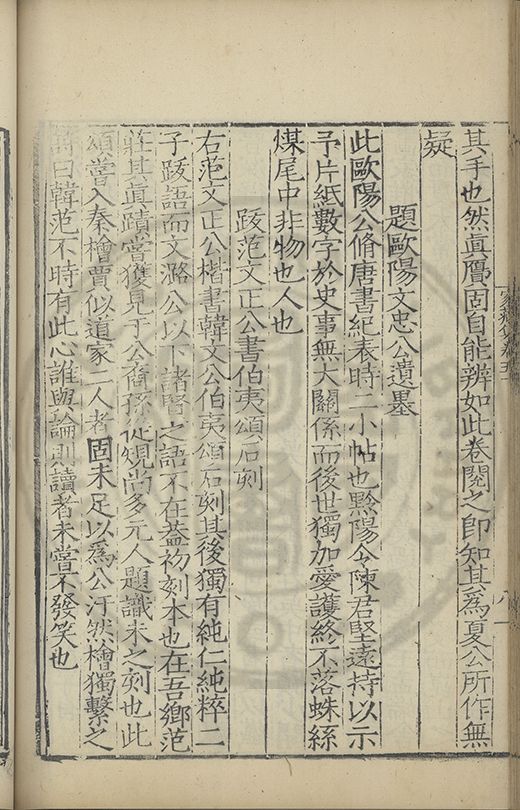 其手也然眞贋固自能辨如此卷閱之即知其爲夏公所作無
疑
題歐陽文忠公遺墨
此歐陽公脩唐書紀表時二小帖也黟陽令陳君堅遠持以示
予片紙數字於史事無大關係而後世獨加愛護終不落蛛絲
煤尾中非物也人也
跋范文正公書伯夷頌石刻
右范文正公楷書韓文公伯夷頌石刻其後獨有純仁純粹二
子跋語而文潞公以下諸賢之語不在蓋初刻本也在吾鄉范
莊其眞蹟嘗獲見于公裔孫從規尚多元人題識未之刻也此
頌嘗入秦檜賈似道家二人者固未足以爲公汙然檜獨繫之
詩曰韓范不時有此心誰與論則讀者未嘗不發笑也